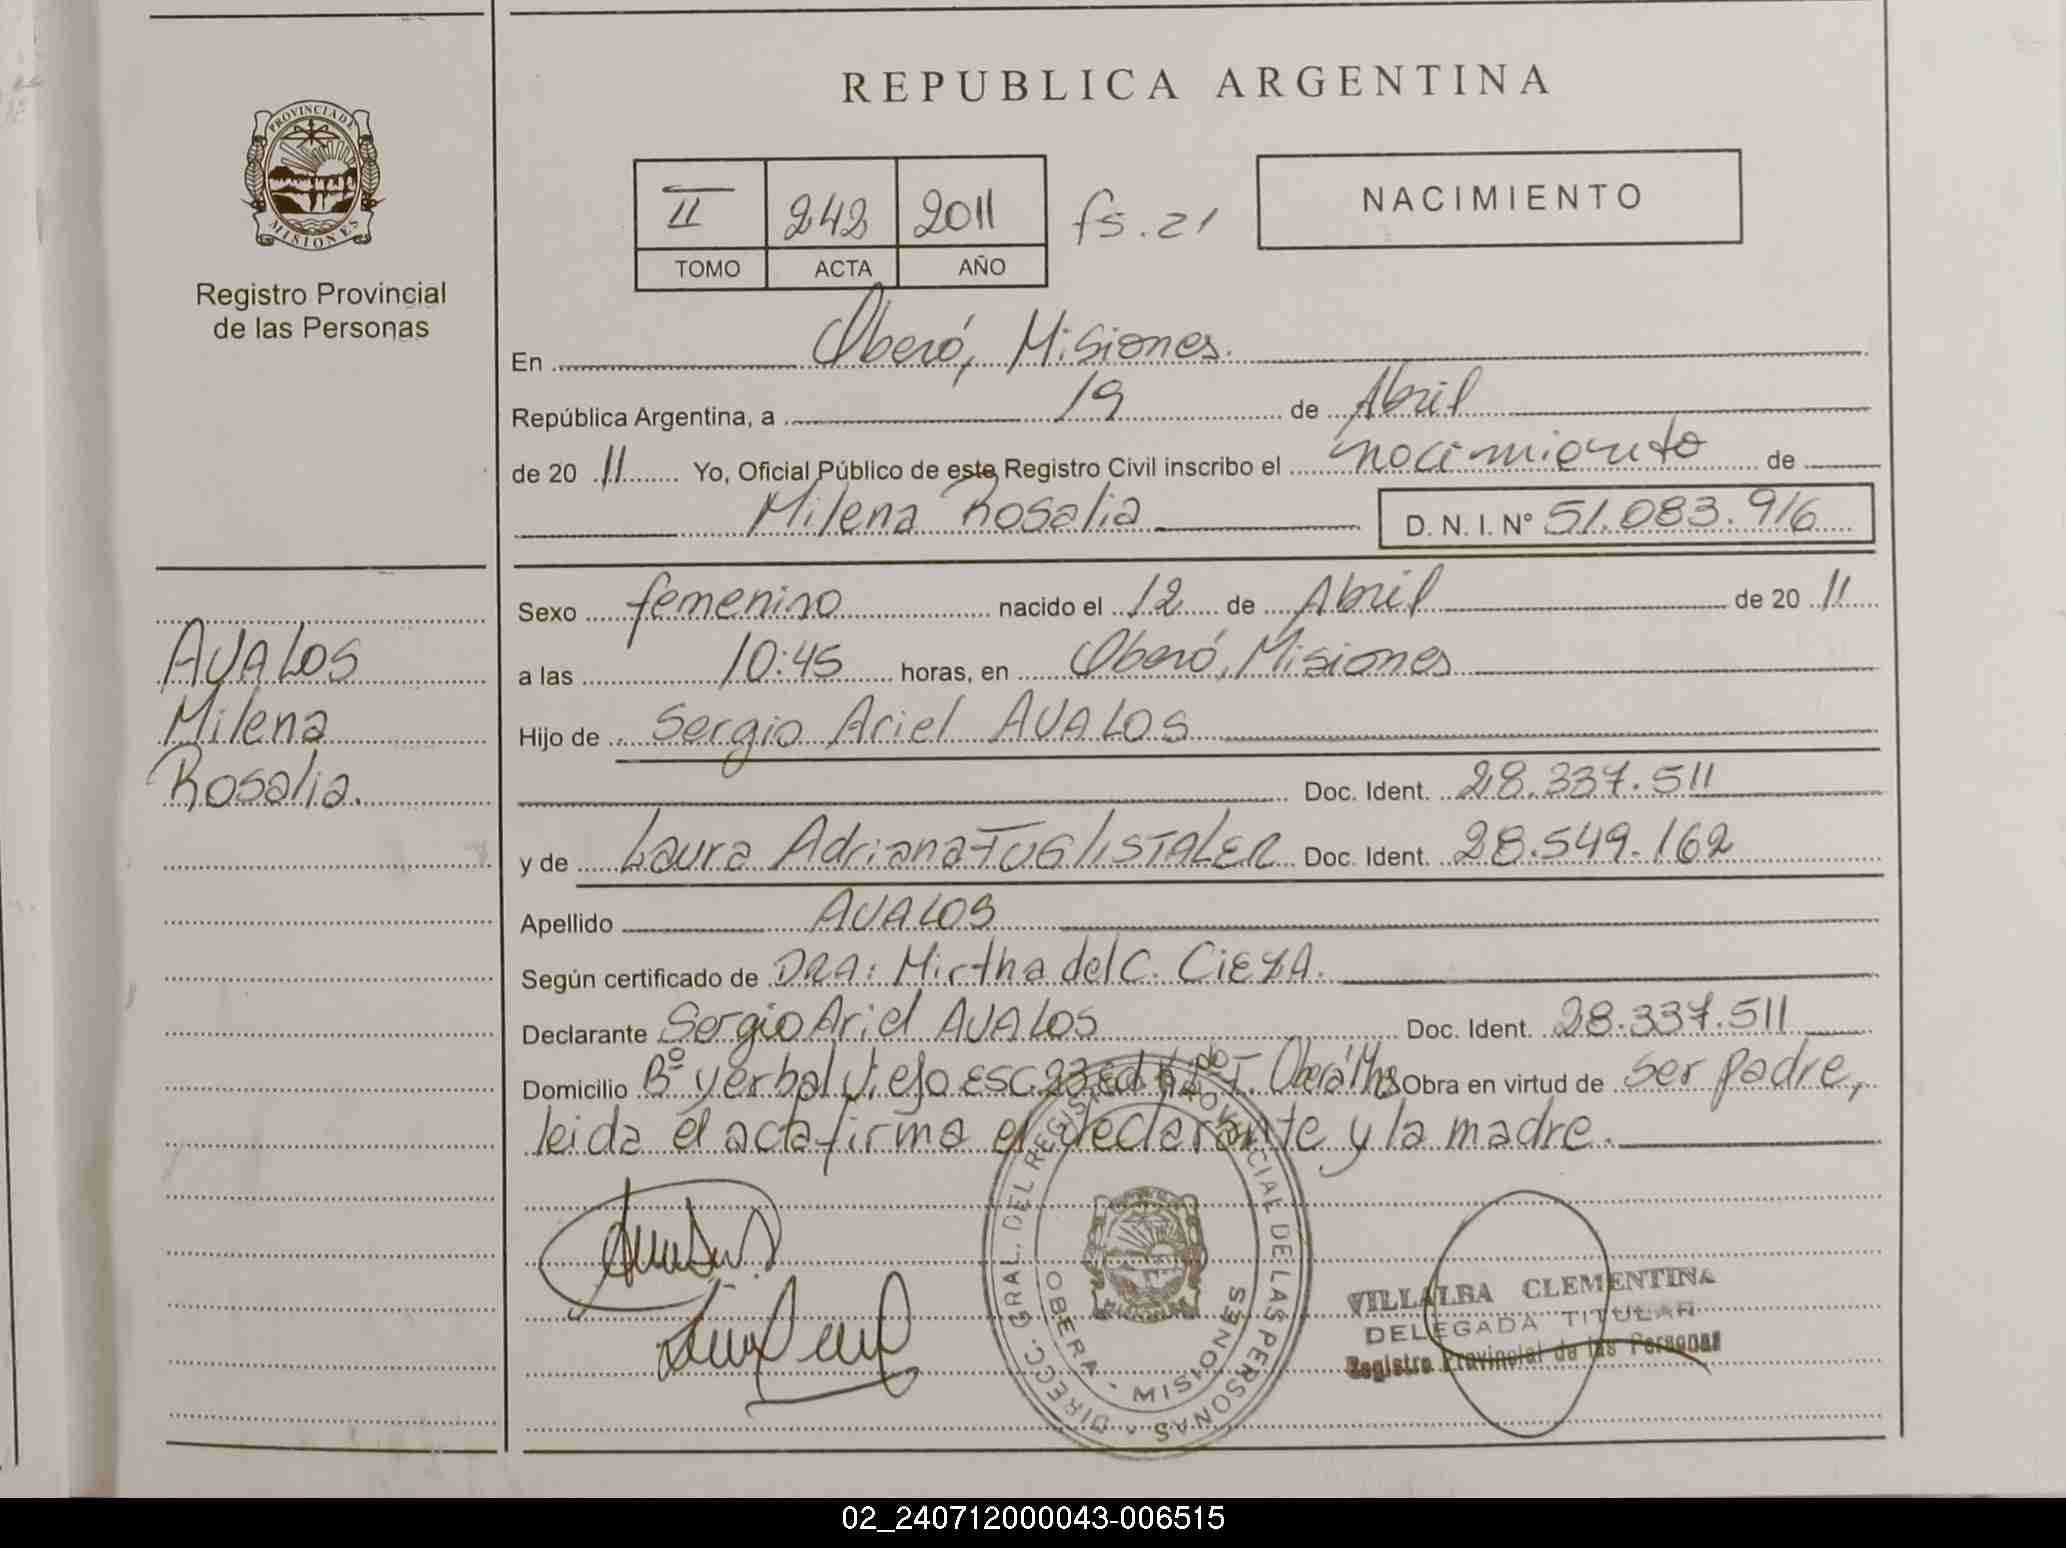 REPUBLICA ARGENTINA
PROVINCIA DE
MISIONES
Registro Provincial
de las Personas
II 242 2011 fs. 21
TOMO ACTA AÑO
NACIMIENTO
En Oberá, Misiones.
República Argentina, a 19 de Abril
de 20 11 Yo, Oficial Público de este Registro Civil inscribo el nacimiento de
Milena Rosalia D. N. I. N° 51.083.916
AVALOS
Milena
Rosalia.
Sexo femenino nacido el 12 de Abril de 20 11
a las 10:45 horas, en Oberá, Misiones
Hijo de Sergio Ariel AVALOS
Doc. Ident. 28.337.511
y de Laura Adriana FUGLISTALER Doc. Ident. 28.549.162
Apellido AVALOS
Según certificado de DRA: Mirtha del C. CIEZA.
Declarante Sergio Ariel AVALOS Doc. Ident. 28.337.511
Domicilio Bº yerbal viejo Esc. 23 Ed. Oberá Mnes Obra en virtud de ser padre,
leida el acta firma el declarante y la madre.
DIRECC. GRAL. DEL REGISTRO PROVINCIAL DE LAS PERSONAS
OBERA - MISIONES
VILLALBA CLEMENTINA
DELEGADA TITULAR
Registro Provincial de las Personas
02_240712000043-006515